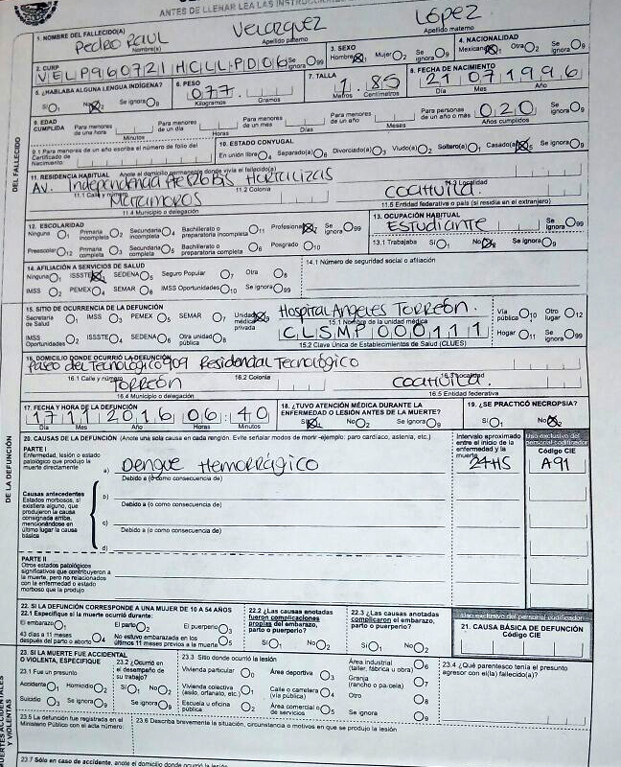 ANTES DE LLENAR LEA LAS
Pedro Raul Velazquez López
1. NOMBRE DEL FALLECIDO(A) Nombre(s) Apellido paterno Apellido materno
2. CURP VELP960721HCLLPD06 Se ignora 99
3. SEXO Hombre Mujer 2 Se ignora 9
4. NACIONALIDAD Mexicana Otra 2 Se ignora 9
5. ¿HABLABA ALGUNA LENGUA INDÍGENA? Sí 1 No Se ignora 9
6. PESO 077. Kilogramos Gramos
7. TALLA 1.85 Metros Centímetros
8. FECHA DE NACIMIENTO 21 07 1996 Día Mes Año
9. EDAD CUMPLIDA Para menores de una hora Minutos Para menores de un día Horas Para menores de un mes Días Para menores de un año Meses Para personas de un año o más 020 Años cumplidos Se ignora 9
9.1 Para menores de un año escriba el número de folio del Certificado de Nacimiento
10. ESTADO CONYUGAL En unión libre 4 Separado(a) 6 Divorciado(a) 3 Viudo(a) 2 Soltero(a) 1 Casado(a) Se ignora 9
11. RESIDENCIA HABITUAL Anote el domicilio permanente donde vivía el fallecido(a)
Av. Independencia Hortalizas
11.1 Calle y número 11.2 Colonia 11.3 Localidad
Matamoros coahuila
11.4 Municipio o delegación 11.5 Entidad federativa o país (si residía en el extranjero)
12. ESCOLARIDAD
Ninguna 1 Primaria incompleta 2 Secundaria incompleta 4 Bachillerato o preparatoria incompleta 11 Profesional Se ignora 99
Preescolar 12 Primaria completa 3 Secundaria completa 5 Bachillerato o preparatoria completa 6 Posgrado 10
13. OCUPACIÓN HABITUAL
Estudiante Se ignora 99
13.1 Trabajaba Sí 1 No Se ignora 9
14. AFILIACIÓN A SERVICIOS DE SALUD
Ninguna 1 ISSSTE SEDENA 5 Seguro Popular 7 Otra 8
IMSS 2 PEMEX 4 SEMAR 6 IMSS Oportunidades 10 Se ignora 99
14.1 Número de seguridad social o afiliación
15. SITIO DE OCURRENCIA DE LA DEFUNCIÓN
Secretaría de Salud IMSS 3 PEMEX 5 SEMAR 7 Unidad médica privada
IMSS Oportunidades 2 ISSSTE 4 SEDENA 6 Otra unidad pública 8
Hospital Angeles Torreón.
15.1 Nombre de la unidad médica
CLSMP000111
15.2 Clave Única de Establecimientos de Salud (CLUES)
Vía pública 10 Otro lugar 12
Hogar 11 Se ignora 99
16. DOMICILIO DONDE OCURRIÓ LA DEFUNCIÓN
Paseo del Tecnológico 909 Residencial Tecnológico
16.1 Calle y número 16.2 Colonia 16.3 Localidad
Torreón coahuila.
16.4 Municipio o delegación 16.5 Entidad federativa
17. FECHA Y HORA DE LA DEFUNCIÓN
17 11 2016 06:40
Día Mes Año Horas Minutos
18. ¿TUVO ATENCIÓN MÉDICA DURANTE LA ENFERMEDAD O LESIÓN ANTES DE LA MUERTE?
Sí No 2 Se ignora 9
19. ¿SE PRACTICÓ NECROPSIA?
Sí 1 No
20. CAUSAS DE LA DEFUNCIÓN (Anote una sola causa en cada renglón. Evite señalar modos de morir -ejemplo: paro cardiaco, astenia, etc.)
Intervalo aproximado entre el inicio de la enfermedad y la muerte
Uso exclusivo del personal codificador
Código CIE
PARTE I
Enfermedad, lesión o estado patológico que produjo la muerte directamente
a) Dengue Hemorrágico 24HS A91
Debido a (o como consecuencia de)
Causas antecedentes
Estados morbosos, si existiera alguno, que produjeron la causa consignada arriba, mencionándose en último lugar la causa básica
b)
Debido a (o como consecuencia de)
c)
Debido a (o como consecuencia de)
d)
PARTE II
Otros estados patológicos significativos que contribuyeron a la muerte, pero no relacionados con la enfermedad o estado morboso que la produjo
22. SI LA DEFUNCIÓN CORRESPONDE A UNA MUJER DE 10 A 54 AÑOS
22.1 Especifique si la muerte ocurrió durante:
El embarazo 1 El parto 2 El puerperio 3
43 días a 11 meses después del parto o aborto 4 No estuvo embarazada en los últimos 11 meses previos a la muerte 5
22.2 ¿Las causas anotadas fueron complicaciones propias del embarazo, parto o puerperio?
Sí 1 No 2
22.3 ¿Las causas anotadas complicaron el embarazo, parto o puerperio?
Sí 1 No 2
Uso exclusivo del personal codificador
21. CAUSA BÁSICA DE DEFUNCIÓN
Código CIE
23. SI LA MUERTE FUE ACCIDENTAL O VIOLENTA, ESPECIFIQUE
23.1 Fue un presunto
Accidente 1 Homicidio 2
Suicidio 3 Se ignora 9
23.2 ¿Ocurrió en el desempeño de su trabajo?
Sí 1 No 2
Se ignora 9
23.3 Sitio donde ocurrió la lesión
Vivienda particular 0 Área deportiva 3 Área industrial (taller, fábrica u obra) 6
Vivienda colectiva (asilo, orfanato, etc.) 1 Calle o carretera (vía pública) 4 Granja (rancho o parcela) 7
Escuela u oficina pública 2 Área comercial o de servicios 5 Otro 8
Se ignora 9
23.4 ¿Qué parentesco tenía el presunto agresor con el(la) fallecido(a)?
23.5 La defunción fue registrada en el Ministerio Público con el acta número
23.6 Describa brevemente la situación, circunstancia o motivos en que se produjo la lesión
23.7 Sólo en caso de accidente, anote el domicilio donde ocurrió la lesión
DEL FALLECIDO
DE LA DEFUNCIÓN
MUERTES ACCIDENTALES Y VIOLENTAS